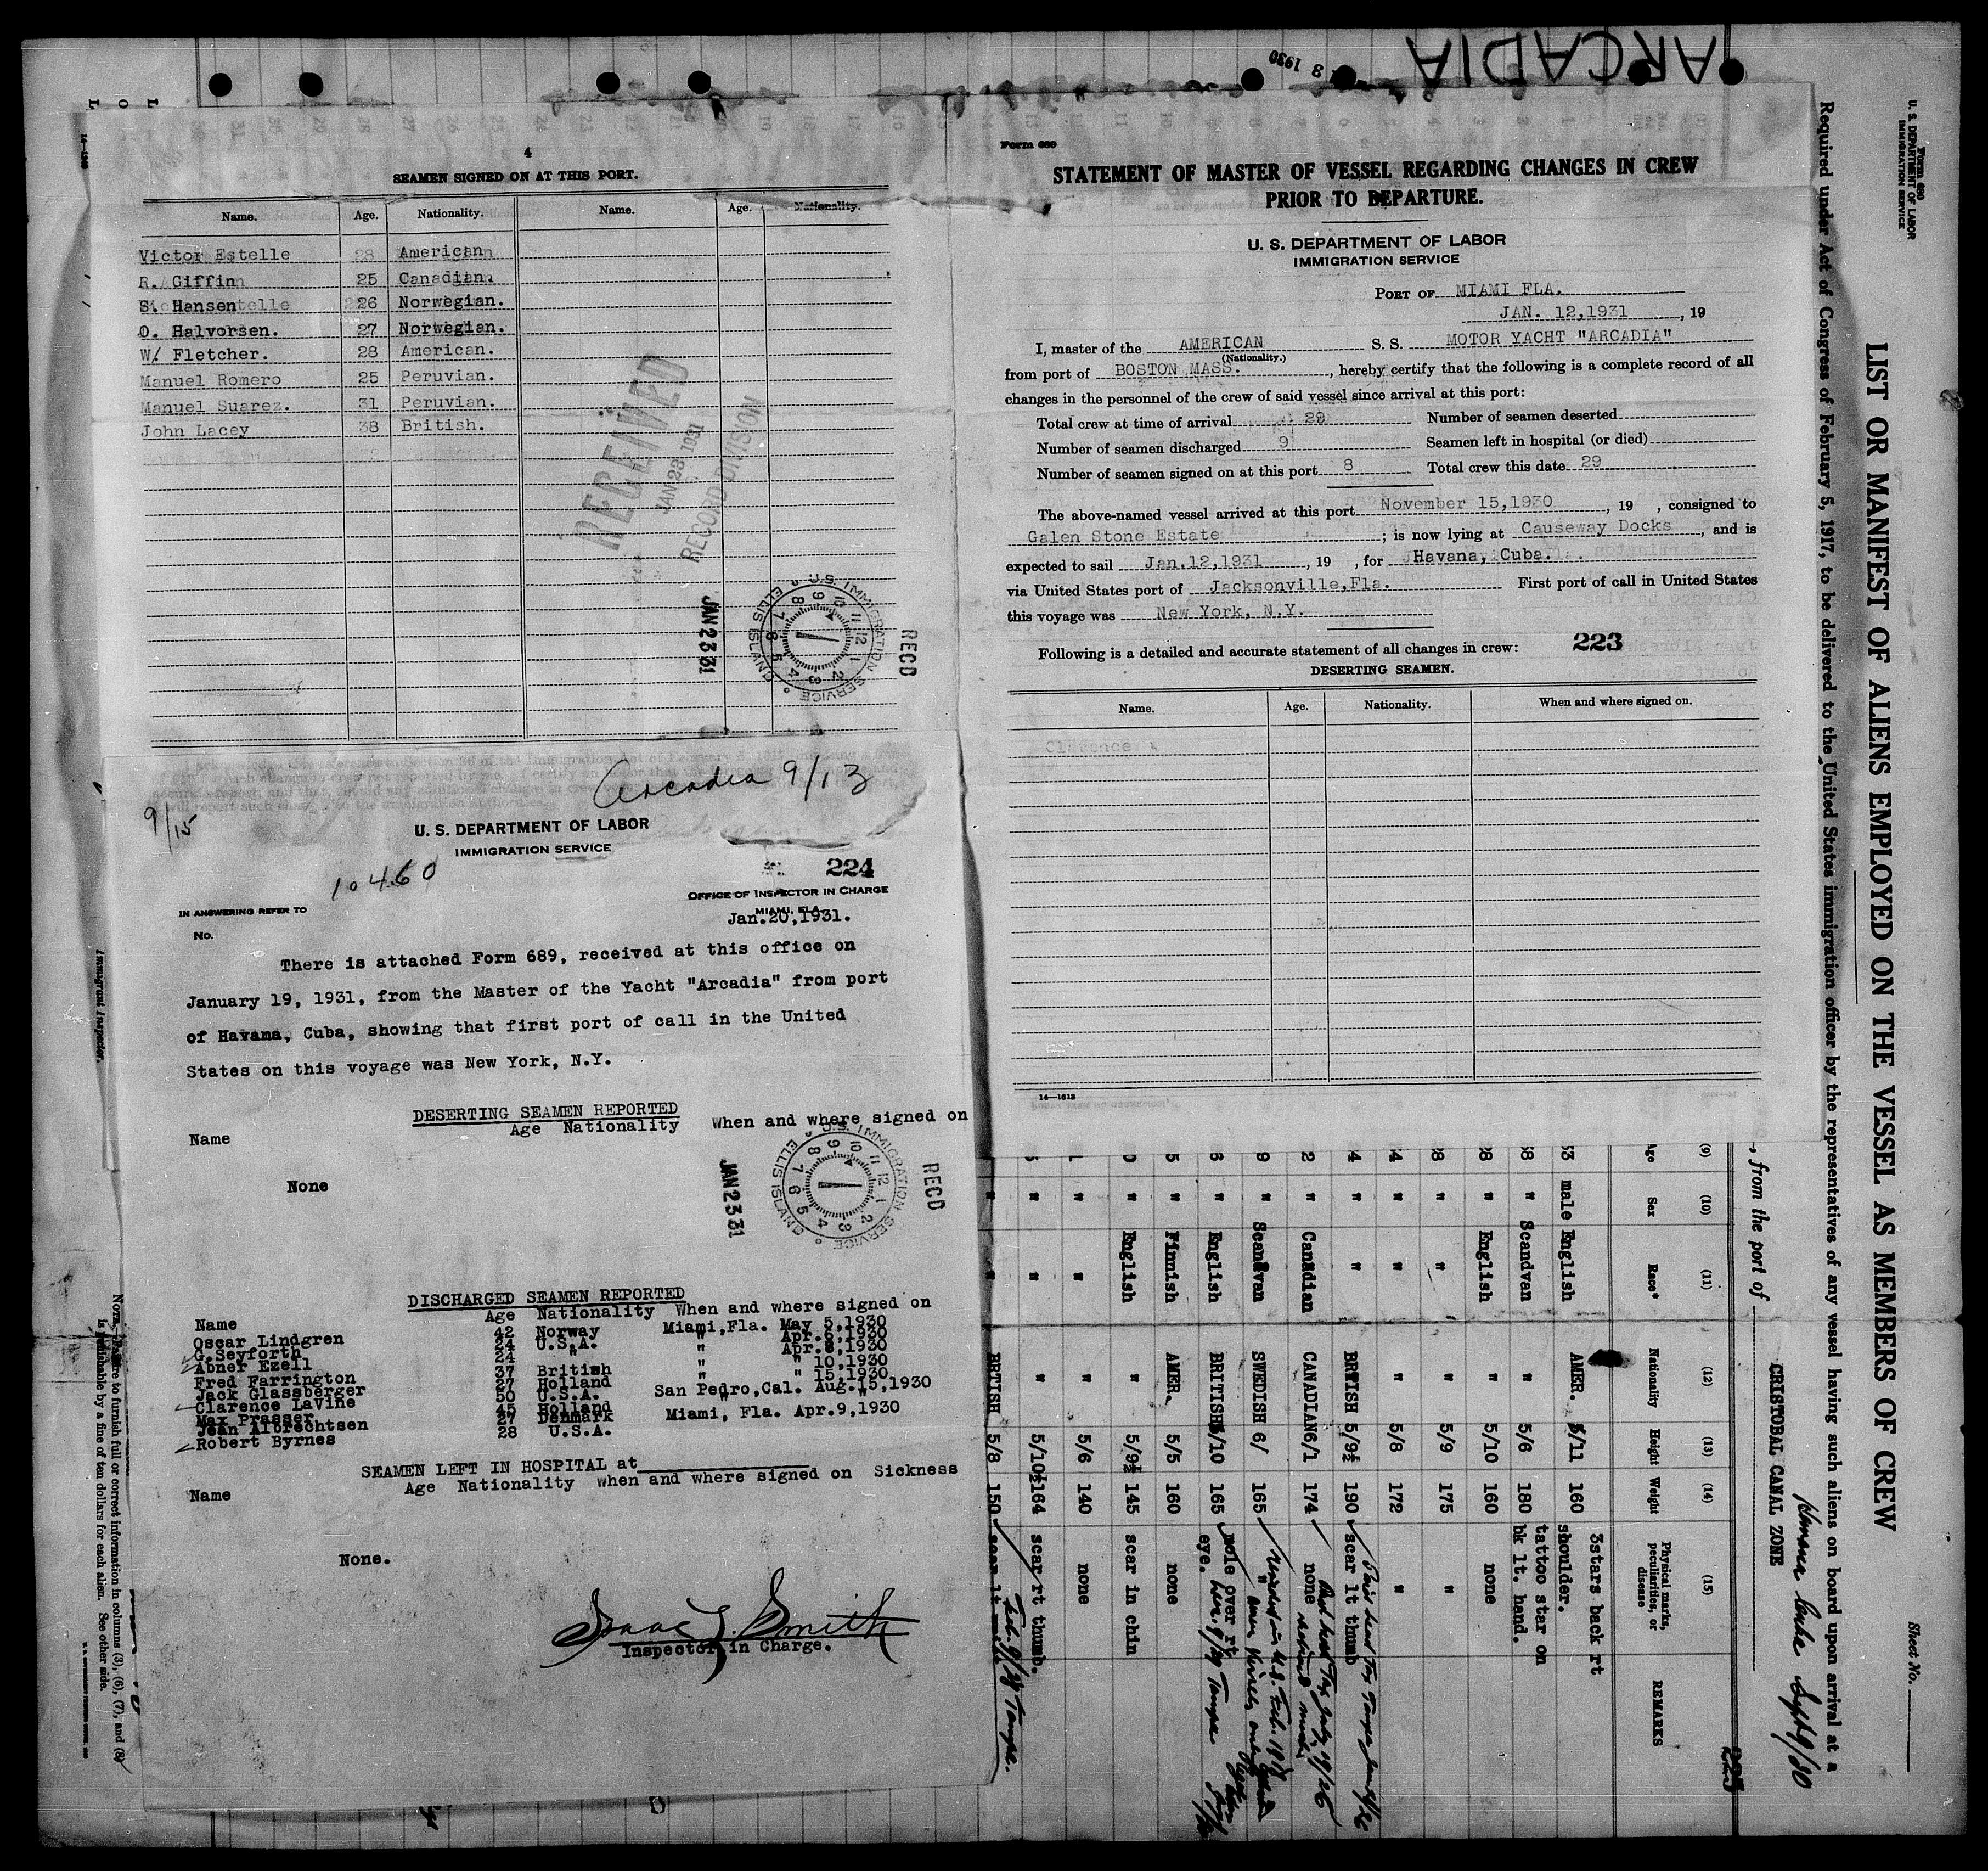 ARCADIA
3 1930
4
SEAMEN SIGNED ON AT THIS PORT.
Name. Age. Nationality. Name. Age. Nationality.
Victor Estelle 28 American
R. Giffin 25 Canadian.
S. Hansen 26 Norwegian.
O. Halvorsen. 27 Norwegian.
W/ Fletcher. 28 American.
Manuel Romero 25 Peruvian.
Manuel Suarez. 31 Peruvian.
John Lacey 38 British.
RECEIVED
JAN 23 1931
RECORD DIVISION
JAN 23 31
U.S. IMMIGRATION SERVICE
ELLIS ISLAND
RECD
Form 689
STATEMENT OF MASTER OF VESSEL REGARDING CHANGES IN CREW
PRIOR TO DEPARTURE.
U. S. DEPARTMENT OF LABOR
IMMIGRATION SERVICE
PORT OF MIAMI FLA.
JAN. 12,1931 , 19
I, master of the AMERICAN S. S. MOTOR YACHT "ARCADIA"
(Nationality.)
from port of BOSTON MASS. , hereby certify that the following is a complete record of all
changes in the personnel of the crew of said vessel since arrival at this port:
Total crew at time of arrival 29 Number of seamen deserted
Number of seamen discharged 9 Seamen left in hospital (or died)
Number of seamen signed on at this port 8 Total crew this date 29
The above-named vessel arrived at this port November 15,1930 , 19 , consigned to
Galen Stone Estate ; is now lying at Causeway Docks , and is
expected to sail Jan.12,1931 , 19 , for Havana, Cuba.
via United States port of Jacksonville,Fla. First port of call in United States
this voyage was New York, N.Y.
Following is a detailed and accurate statement of all changes in crew: 223
DESERTING SEAMEN.
Name. Age. Nationality. When and where signed on.
Clarence
14—1613
Arcadia 9/13
9/15
U. S. DEPARTMENT OF LABOR
IMMIGRATION SERVICE
10460
224
OFFICE OF INSPECTOR IN CHARGE
MIAMI, FLA.
IN ANSWERING REFER TO
Jan.20,1931.
No.
There is attached Form 689, received at this office on
January 19, 1931, from the Master of the Yacht "Arcadia" from port
of Havana, Cuba, showing that first port of call in the United
States on this voyage was New York, N.Y.
DESERTING SEAMEN REPORTED
Name Age Nationality When and where signed on
None
JAN 23 31
U.S. IMMIGRATION SERVICE
ELLIS ISLAND
RECD
DISCHARGED SEAMEN REPORTED
Name Age Nationality When and where signed on
Oscar Lindgren 42 Norway Miami,Fla. May 5,1930
G. Seyforth 24 U.S.A. " Apr.6,1930
Abner Ezell 24 " " Apr.8,1930
Fred Farrington 37 British " " 10,1930
Jack Glassberger 27 Holland " " 15,1930
Clarence LaVine 50 U.S.A. San Pedro,Cal. Aug.15,1930
Max Prasser 45 Holland " "
Jean Albrechtsen 27 Denmark Miami, Fla. Apr.9,1930
Robert Byrnes 28 U.S.A.
SEAMEN LEFT IN HOSPITAL at
Name Age Nationality when and where signed on Sickness
None.
Isaac L. Smith
Inspector in Charge.
Immigrant Inspector.
NOTE.—Failure to furnish full or correct information in columns (3), (6), (7), and (8)
is punishable by a fine of ten dollars for each alien. See other side.
Form 680
U. S. DEPARTMENT OF LABOR
IMMIGRATION SERVICE
Sheet No.
LIST OR MANIFEST OF ALIENS EMPLOYED ON THE VESSEL AS MEMBERS OF CREW
Required under Act of Congress of February 5, 1917, to be delivered to the United States immigration officer by the representatives of any vessel having such aliens on board upon arrival at a
, from the port of CRISTOBAL CANAL ZONE
Sept 9/30
225
(9) (10) (11) (12) (13) (14) (15)
Age Sex Race* Nationality Height Weight Physical marks, peculiarities, or disease REMARKS
33 male English AMER. 5/11 160 3stars back rt shoulder.
38 " Scandvan " 5/6 180 tattoo star on bk lt. hand.
28 " English " 5/10 160 none
28 " " " 5/9 175 "
4 " " " 5/8 172 "
4 " " BRTISH 5/9½ 190 scar lt thumb
2 " Canadian CANADIAN 6/1 174 none
9 " Scandvan SWEDISH 6/ 165 "
6 " English BRITISH 5/10 165 mole over rt eye.
5 " Finnish AMER. 5/5 160 none
0 " English " 5/9½ 145 scar in chin
" " " 5/6 140 none
" " " 5/10½ 164 scar rt thumb.
" " BRTISH 5/8 150 scar lt